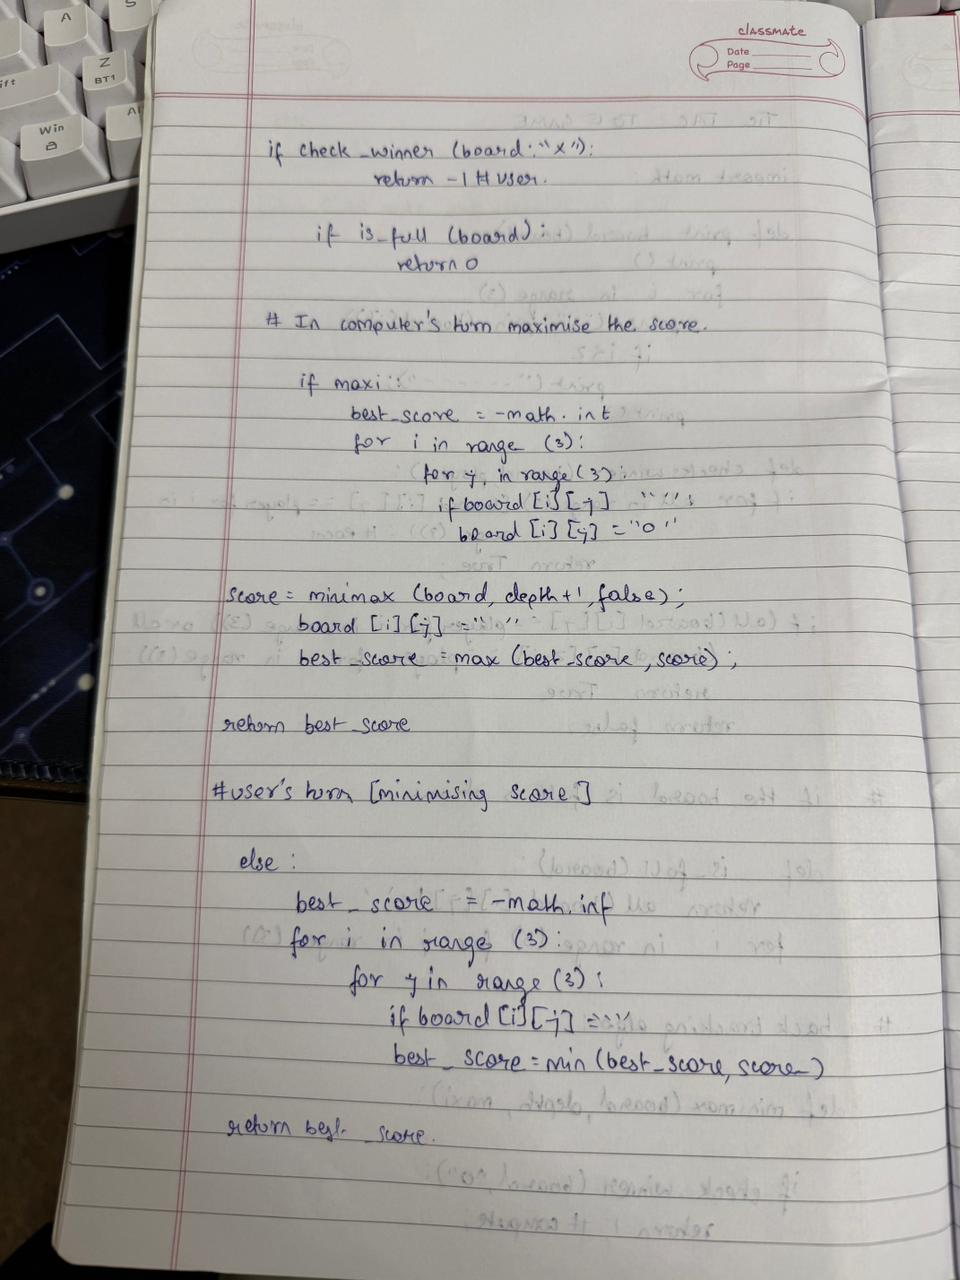 A
S
Z
BT1
ift
Win
Al
classmate
Date
Page
if check_winner (board, "x"):
return -1 # user.
if is_full (board):
return 0
# In computer's turn maximise the score.
if maxi:
best_score = -math. int
for i in range (3):
for j in range (3):
if board [i][j] " ":
board [i][j] = "o"
score = minimax (board, depth+1, false);
board [i][j] = " "
best_score = max (best_score, score);
return best_score
#user's turn [minimising score]
else:
best_score = -math.inf
for i in range (3):
for j in range (3):
if board [i][j] = " "
best_score = min (best_score, score)
return best_score.